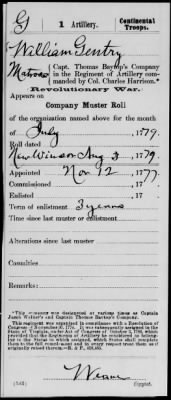 G | 1 Artillery. | Continental Troops.
William Gentry
Matross { Capt. Thomas Baytop's Company in the Regiment of Artillery commanded by Col. Charles Harrison.*
Revolutionary War.
Appears on
Company Muster Roll
of the organization named above for the month
of July 1779.
Roll dated
New Winsor Aug 3, 1779
Appointed Nov 12 1777.
Commissioned , 17 .
Enlisted , 17 .
Term of enlistment 3 years
Time since last muster or enlistment
Alterations since last muster
Casualties
Remarks:
*This company was designated at various times as Captain
and Captain Thomas Baytop's Company.
This regiment was appointed in accordance with a Resolution of
Congress of November 1776. It was subsequently assigned to the
State of Virginia, under Act of Congress of October 3, 1780, which
provided that the Regiments of Artillery be considered as belong-
ing to the States to which assigned, which States shall complete
them to the full complement and in every respect treat them as if
originally raised therein.
Copyist.